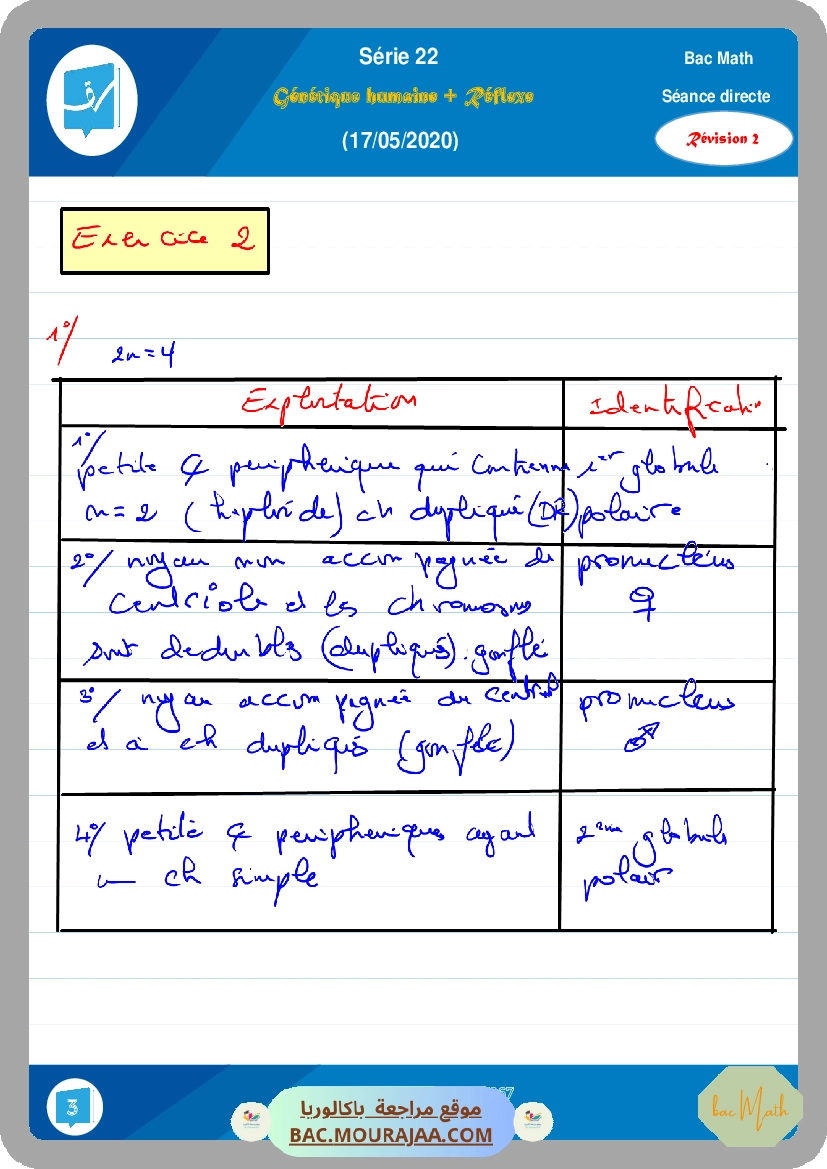 Série 22
Bac Math
Génétique humaine + Réflexe
Séance directe
(17/05/2020)
Révision 2
Exercice 2
1°/
2n = 4
Exploitation
Identification
1°/
petite periphérique qui
1er globule
n = 2 (haploïde) ch dupliqué
polaire
2°/ noyau non accompagnée de
pronucléus
centriole et les chromosomes
♀
sont dedoublés (dupliqués) gonflé
3°/ noyau accompagnée du
pronucleus
et à ch dupliqués (gonflé)
♂
4°/ petite periphériques ayant
globule
ch simple
polair
3
موقع مراجعة باكالوريا
BAC.MOURAJAA.COM
bac Math